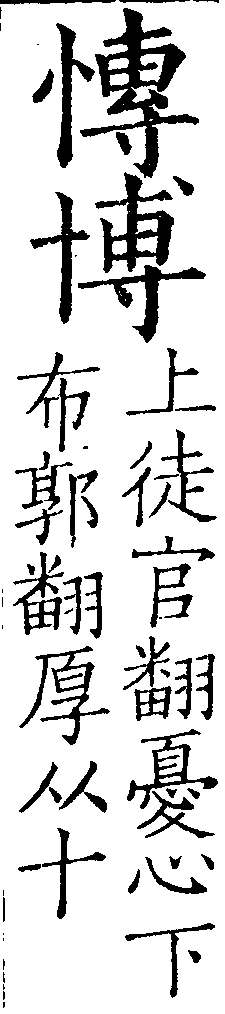 慱博
上徒官翻憂心下
布郭翻厚从十